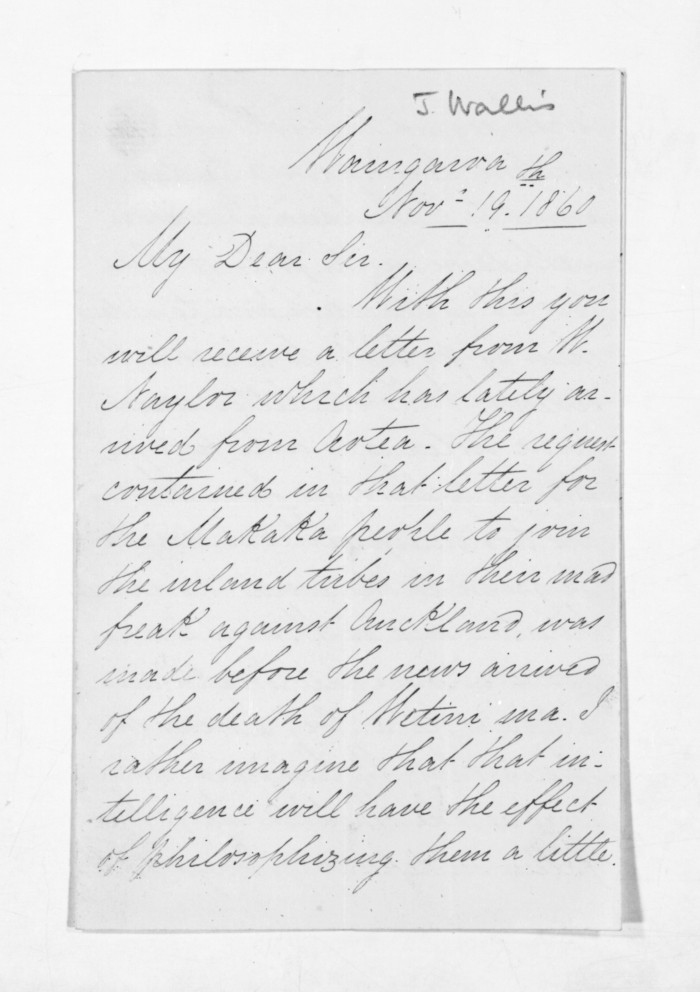 J. Wallis
Waingaroa
Novr. 19.th 1860
My Dear Sir.
With this you
will receive a letter from W.
Naylor which has lately ar-
rived from Aotea. The request
contained in that letter for
the Makaka people to join
the inland tribes in their mad
freak against Auckland, was
made before the news arrived
of the death of Wetini ma. I
rather imagine that that in-
telligence will have the effect
of philosophizing them a little.